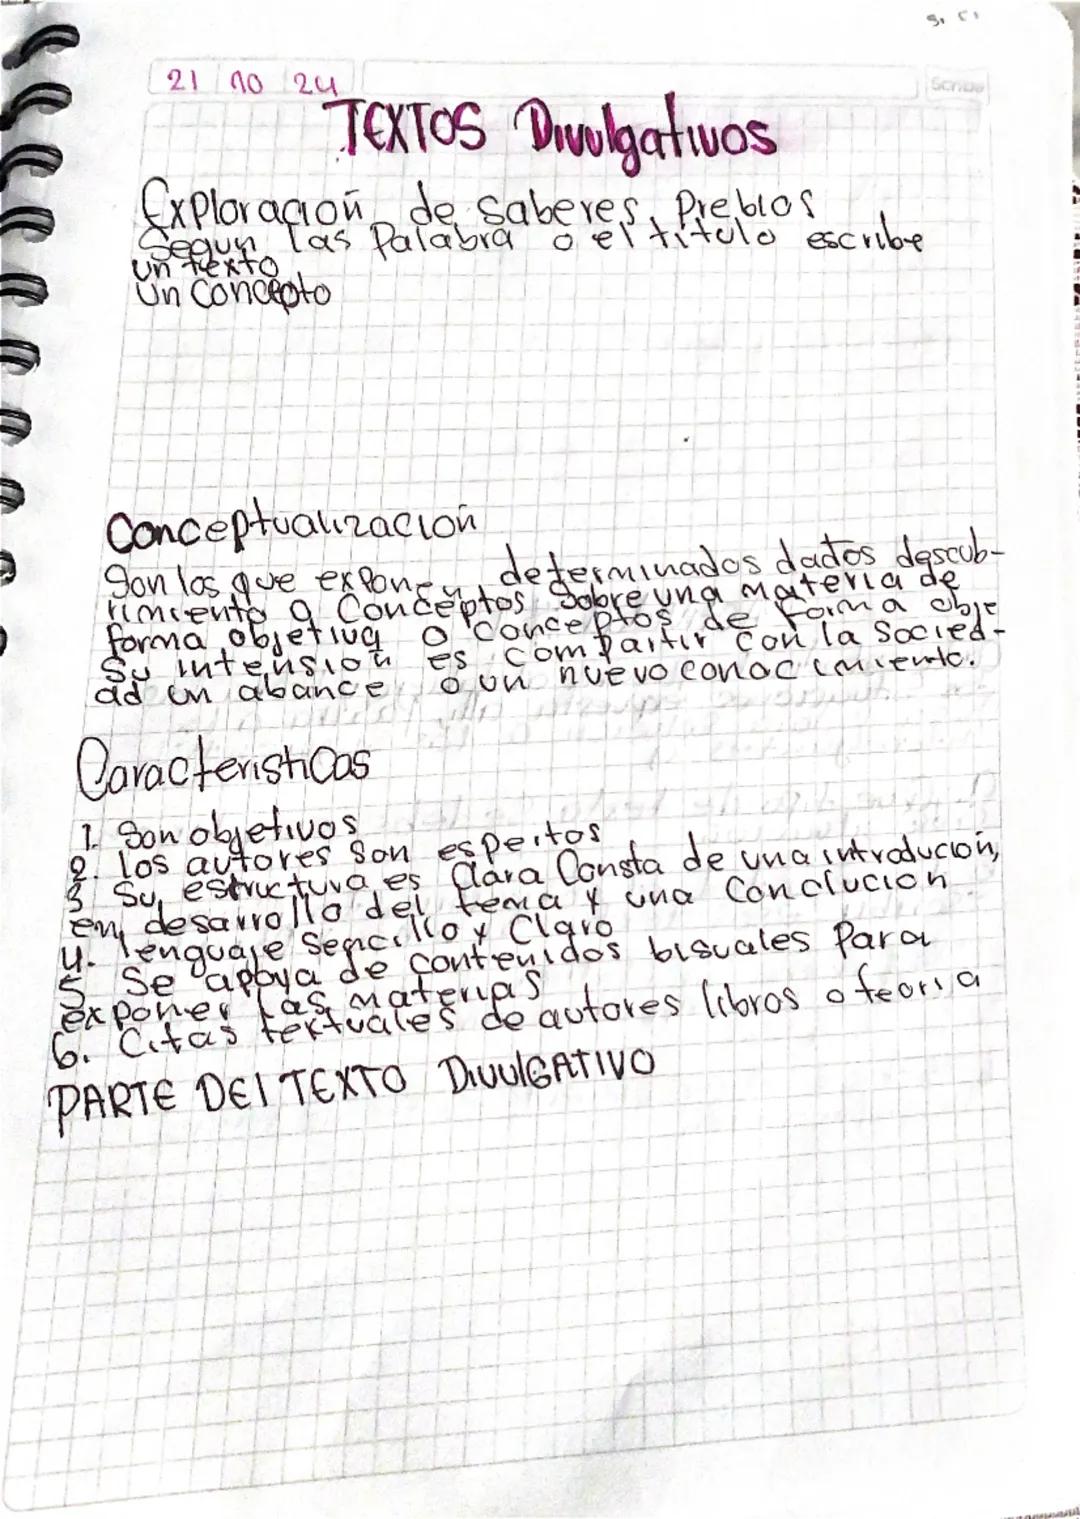 21 10 24
Scribe
TEXTOS Divulgativos
Exploracion de saberes Prebios
Segun las Palabra o el titulo escribe
un texto
Un Concepto
Conceptualizacion
Son los que exponen determinados dados descub-
rimiento o Conceptos Sobre una materia de
forma objetiva o conceptos de forma obje
Su intension es compartir con la Socied-
ad un abance o un nuevo conocimiento.
Caracteristicas
1. Son objetivos
2. los autores son espertos
3 Su estructura es Clara Consta de una introducion,
en desarrollo del tema y una Conclucion
4. lenguaje Sencillo y Claro
5 Se apoya de contenidos bisuales Para
exponer las materias
6. Citas textuales de autores libros o teoria
PARTE DEl TEXTO DIVULGATIVO